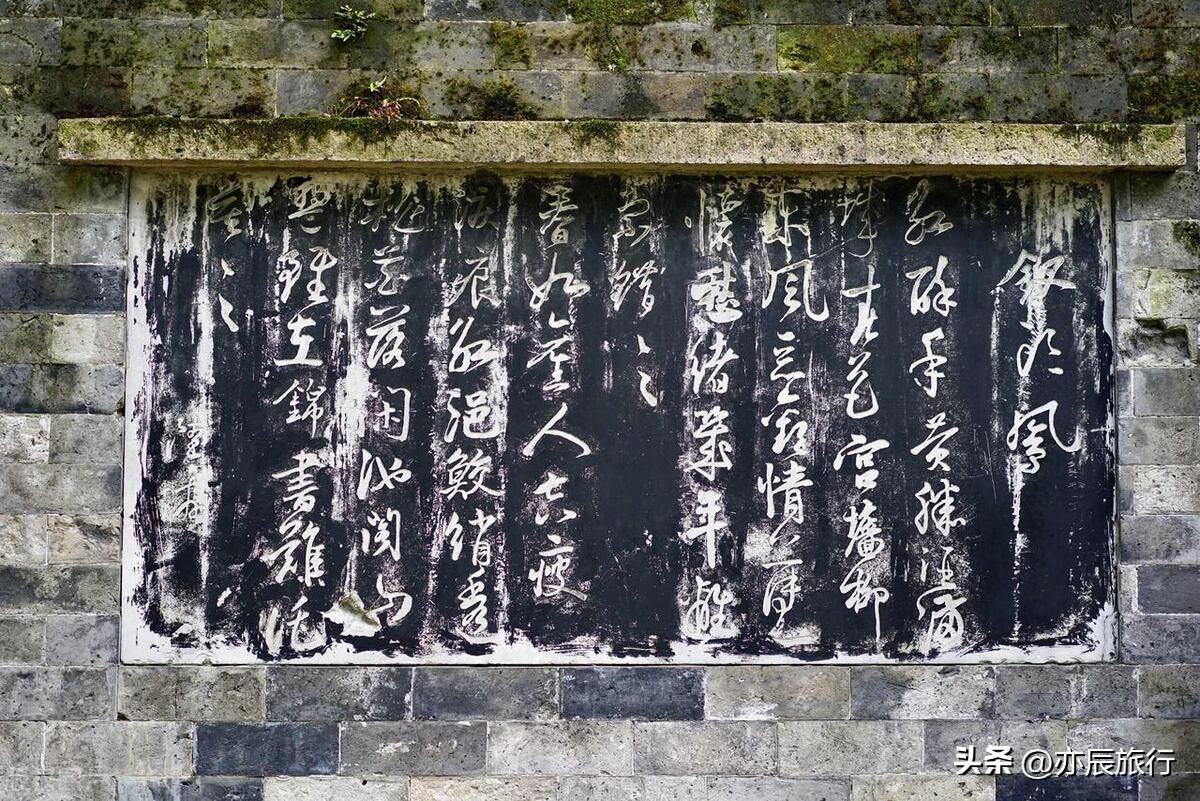 釵頭鳳
紅酥手黃縢酒滿
城春色宮牆柳
東風惡歡情薄一
懷愁緒幾年離
索錯々々
春如舊人空瘦
淚痕紅浥鮫綃透
桃花落閑池閣山
盟雖在錦書難託
莫々々
头条 @亦辰旅行